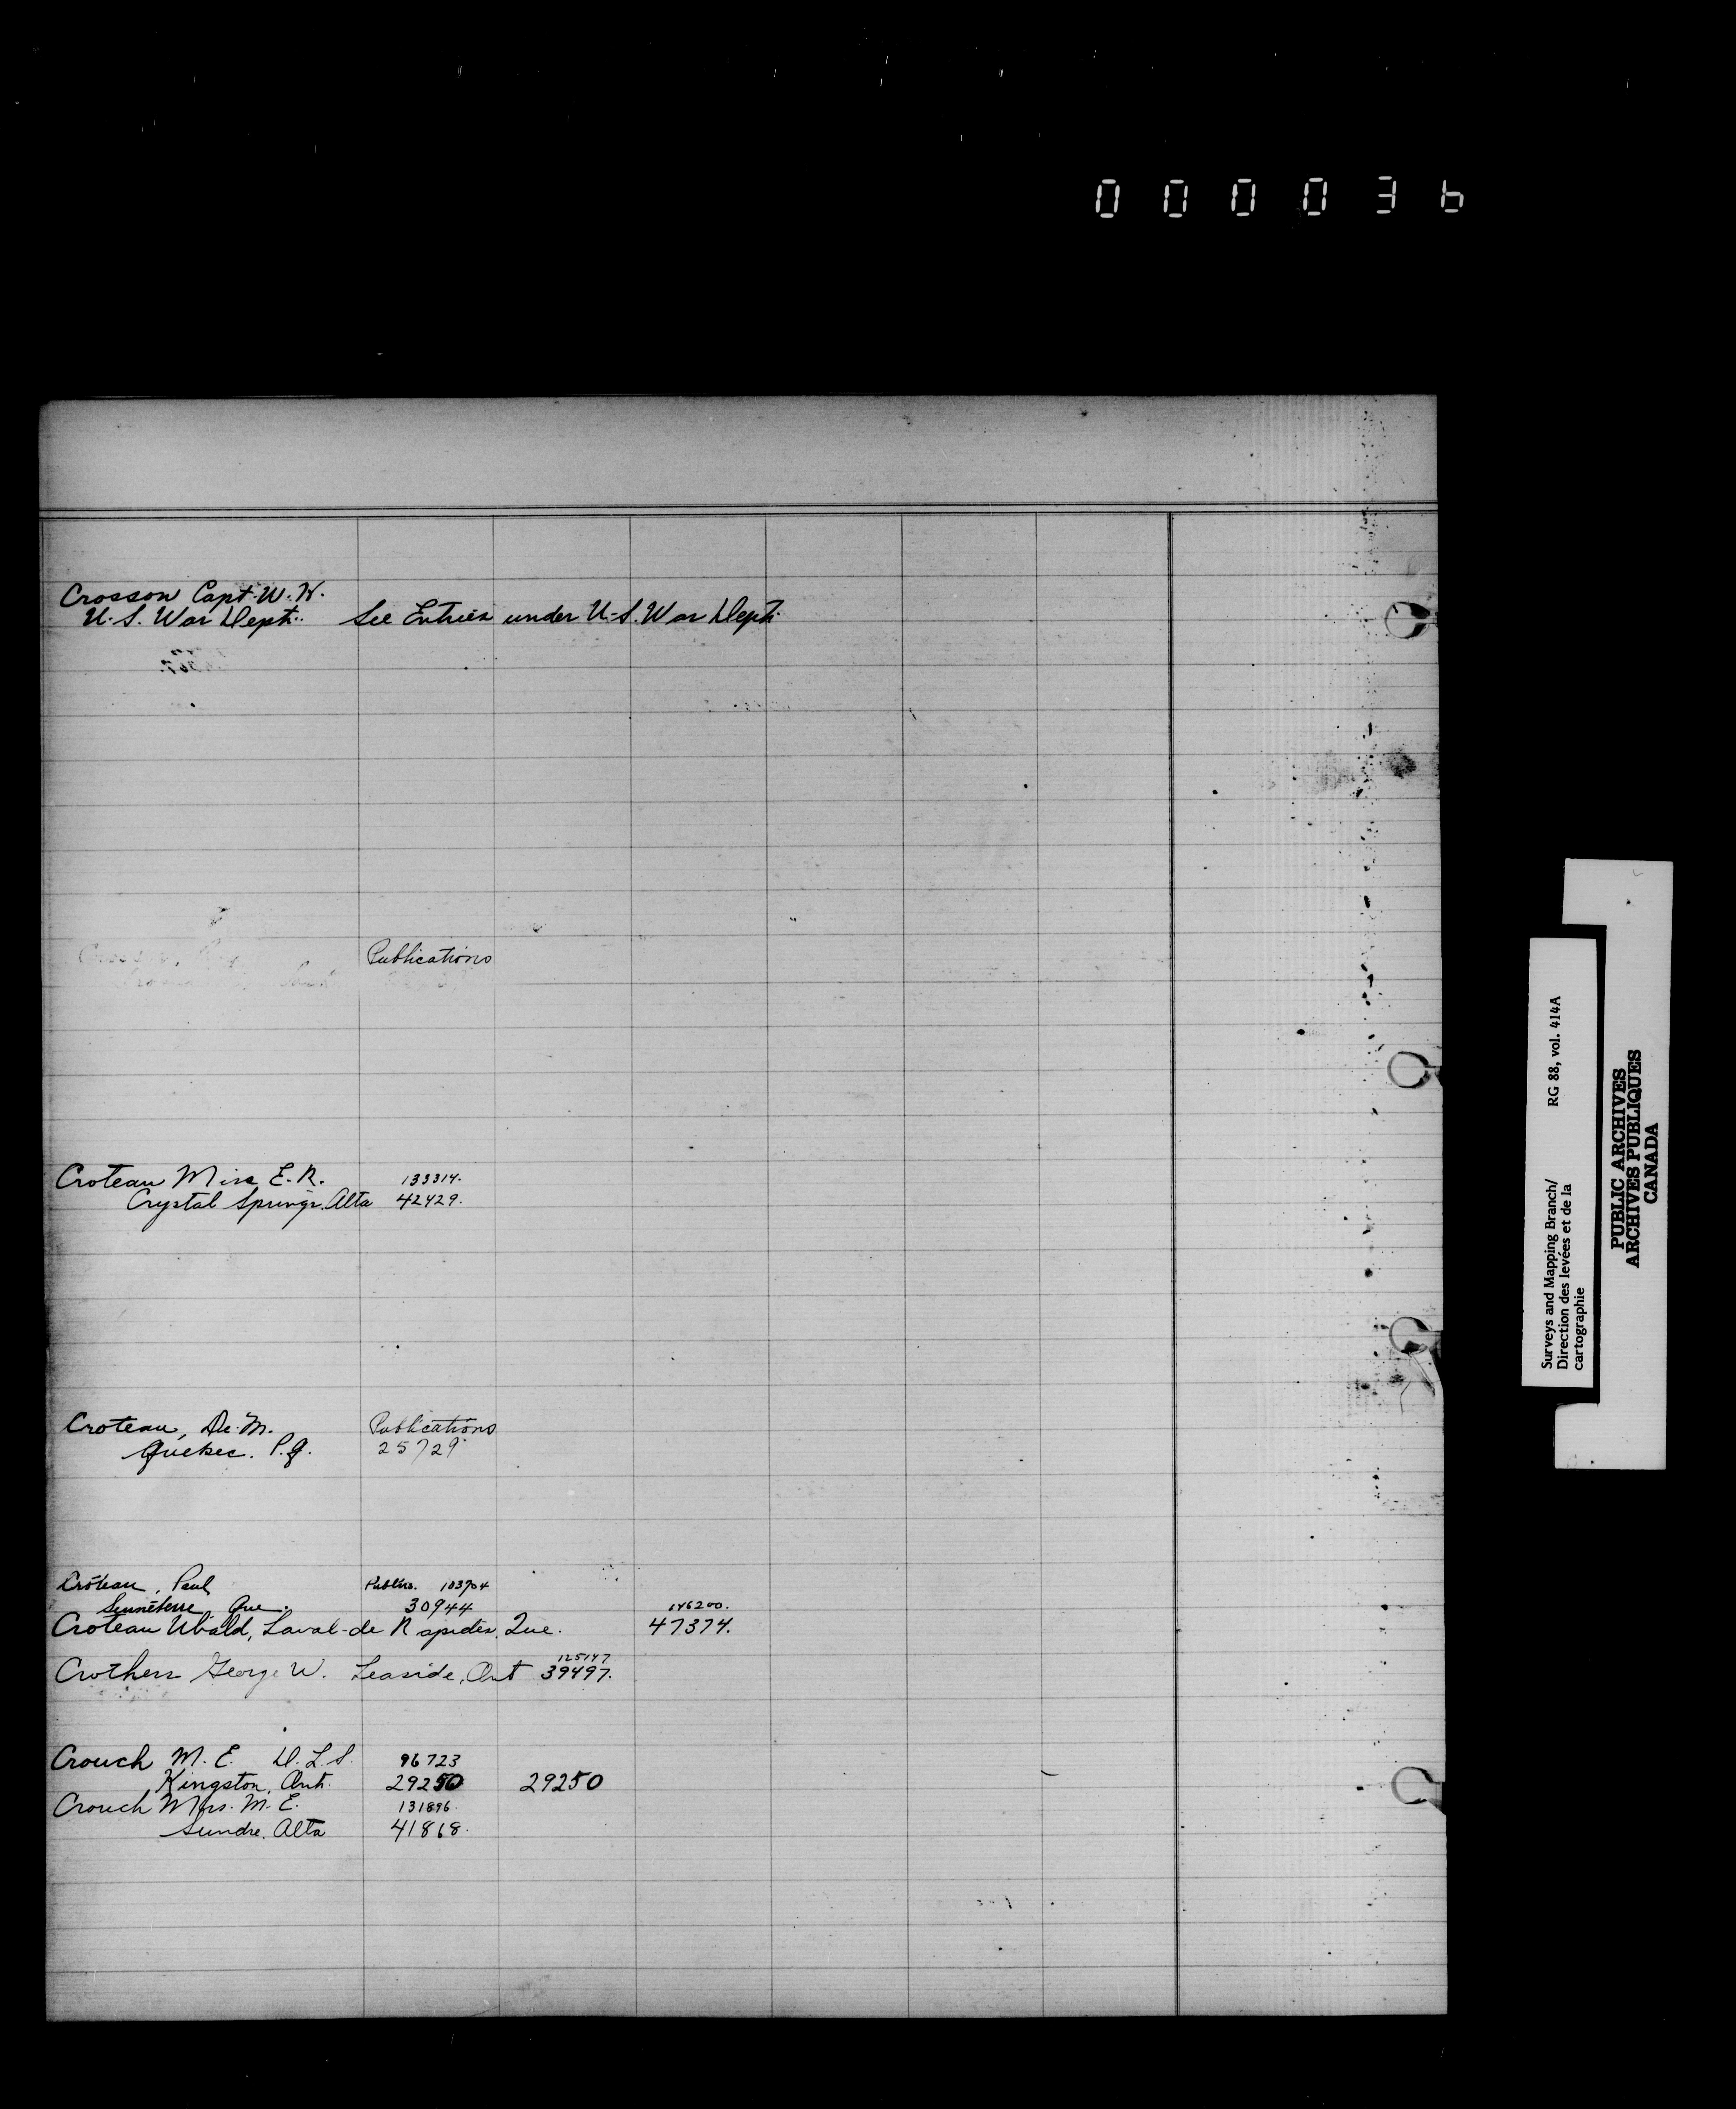 000036
Crosson Capt. W. H.
U.S. War Dept. See Entries under U.S. War Dept.
Publications
Croteau Miss E. R. 133314.
Crystal Springs. Alta 42429.
Croteau, De. M. Publications
Quebec. P.Q. 25729
Croteau, Paul Publns. 103704
Senneterre Que. 30944 146200.
Croteau Ubald, Laval-de Rapides, Que. 47374.
125147
Crothers George W. Leaside, Ont 39497.
Crouch M. E. D.L.S. 96723
Kingston, Ont. 29250 29250
Crouch Mrs. M. E. 131896.
Sundre. Alta 41868.
Surveys and Mapping Branch/ RG 88, vol. 414A
Direction des levées et de la
cartographie
PUBLIC ARCHIVES
ARCHIVES PUBLIQUES
CANADA